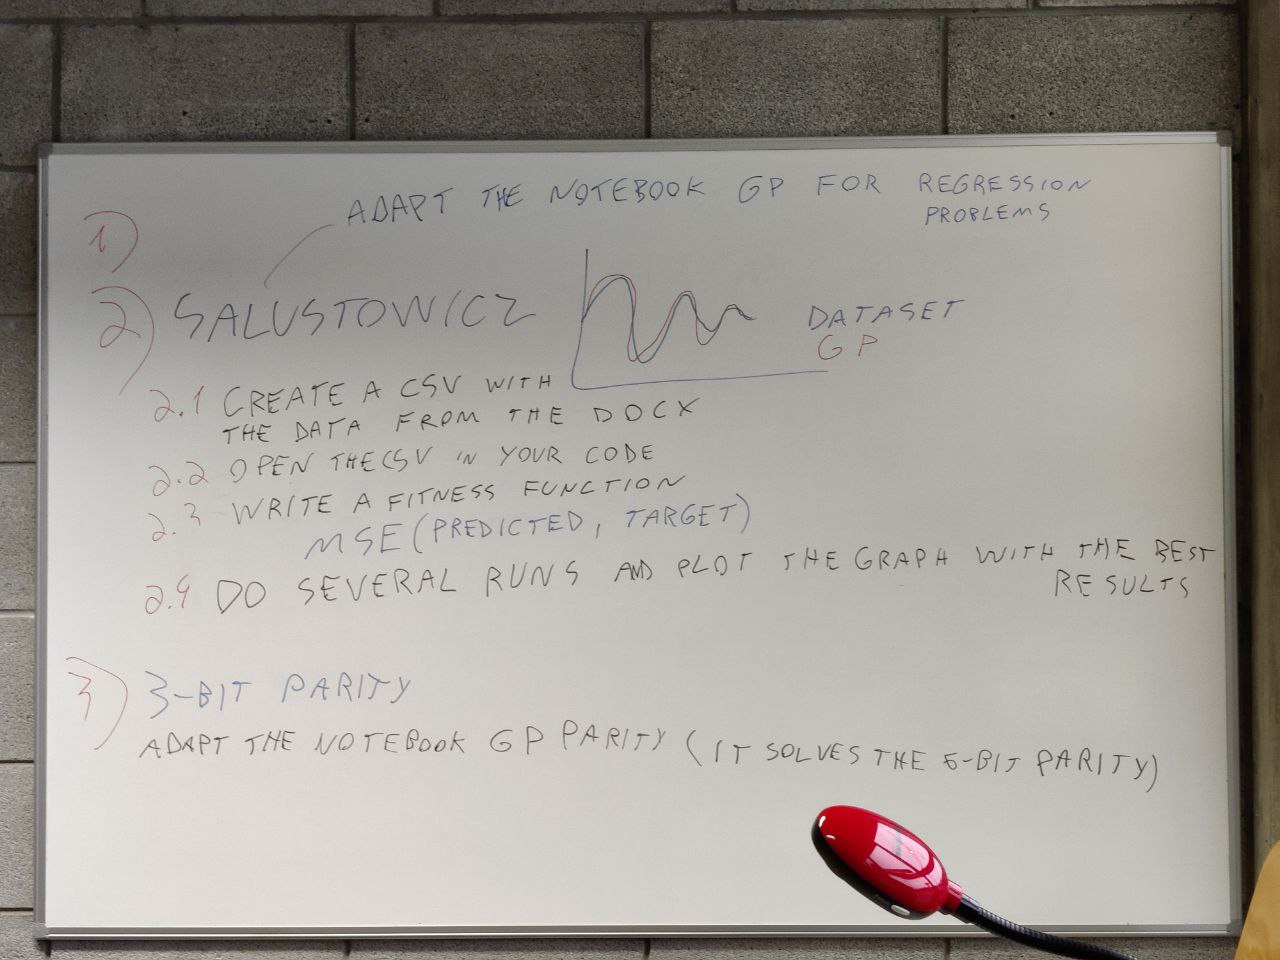 ADAPT THE NOTEBOOK GP FOR REGRESSION
PROBLEMS
1)
2) SALUSTOWICZ
DATASET
GP
2.1 CREATE A CSV WITH
THE DATA FROM THE DOCX
2.2 OPEN THE CSV IN YOUR CODE
2.3 WRITE A FITNESS FUNCTION
MSE(PREDICTED, TARGET)
2.4 DO SEVERAL RUNS AND PLOT THE GRAPH WITH THE BEST
RESULTS
3) 3-BIT PARITY
ADAPT THE NOTEBOOK GP PARITY (IT SOLVES THE 6-BIT PARITY)